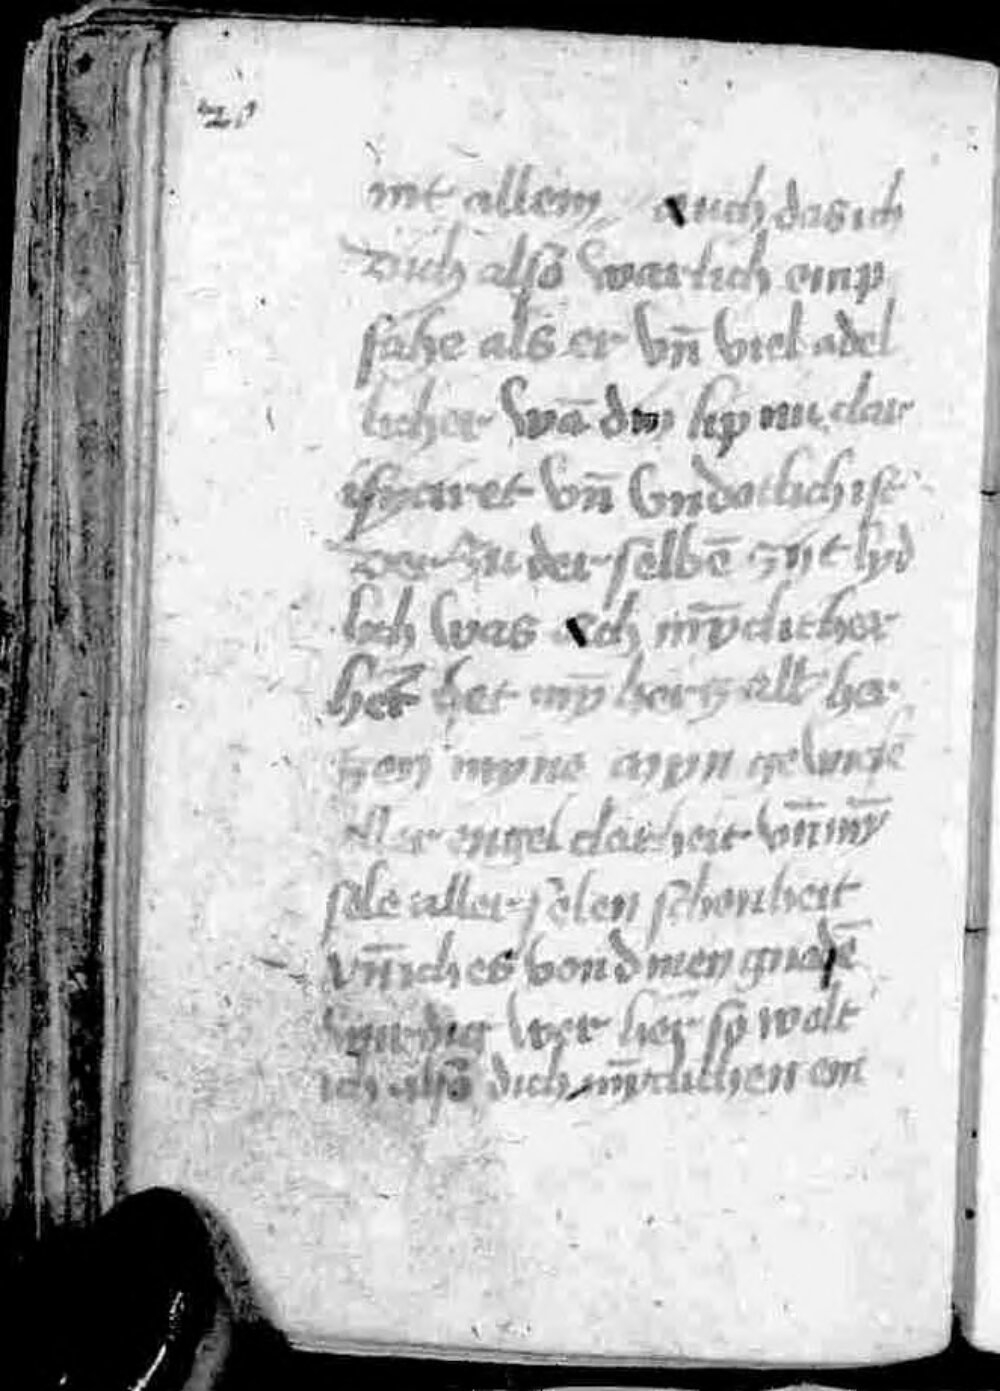 mit allem auch das ich
Dich also warlich emp
fahe als er vn̄ viel adel
licher wā din lip nu clar
ifyciret vn̄ vndotlich ist
Der zu der selbē zyt lyd
lich was Och mȳclicher
her het myn hercz alle her
czen myne ayn
Aller engel clarheit vn̄ my
sele aller selen schonheit
vn̄ ich es von dinen gnadē
wurdig wer her so wolt
ich also dich mȳclichen em